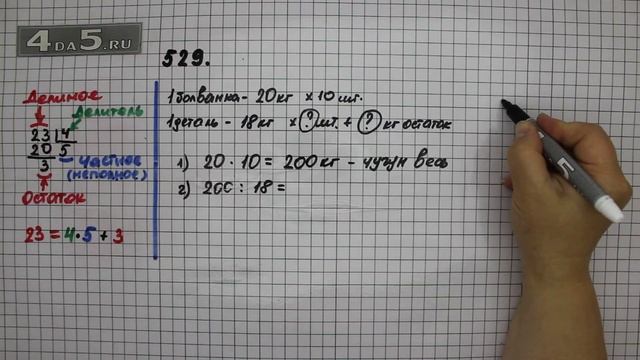 4DA5.RU
529.
Делимое
Делитель
23 4
20 5
3
частное
(неполное)
Остаток
23 = 4 · 5 + 3
1 болванка - 20 кг × 10 шт.
1 деталь - 18 кг × ? шт. + ? кг остаток
1) 20 · 10 = 200 кг - чугун весь
2) 200 : 18 =
5